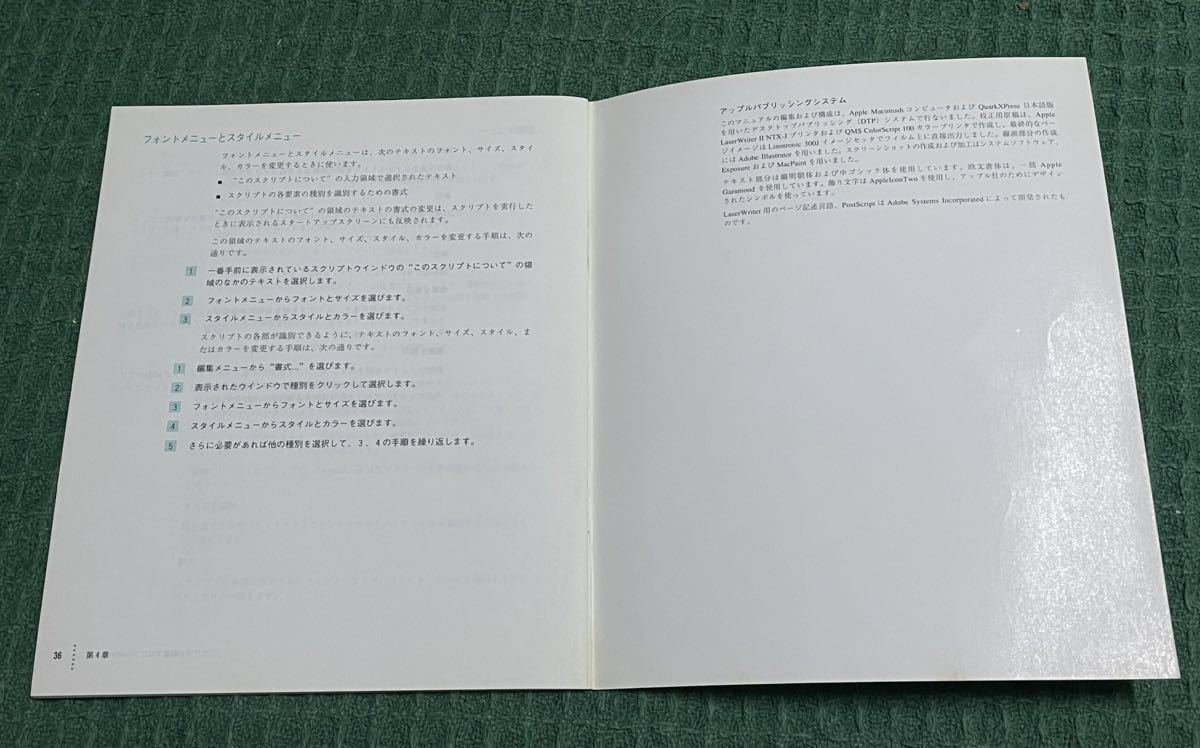 フォントメニューとスタイルメニュー
フォントメニューとスタイルメニューは、次のテキストのフォント、サイズ、スタイ
ル、カラーを変更するときに使います。
■ “このスクリプトについて”の入力領域で選択されたテキスト
■ スクリプトの各要素の種別を識別するための書式
“このスクリプトについて”の領域のテキストの書式の変更は、スクリプトを実行した
ときに表示されるスタートアップスクリーンにも反映されます。
この領域のテキストのフォント、サイズ、スタイル、カラーを変更する手順は、次の
通りです。
1 一番手前に表示されているスクリプトウインドウの“このスクリプトについて”の領
域のなかのテキストを選択します。
2 フォントメニューからフォントとサイズを選びます。
3 スタイルメニューからスタイルとカラーを選びます。
スクリプトの各部が識別できるように、テキストのフォント、サイズ、スタイル、ま
たはカラーを変更する手順は、次の通りです。
1 編集メニューから“書式...”を選びます。
2 表示されたウインドウで種別をクリックして選択します。
3 フォントメニューからフォントとサイズを選びます。
4 スタイルメニューからスタイルとカラーを選びます。
5 さらに必要があれば他の種別を選択して、3、4の手順を繰り返します。
36 第4章
アップルパブリッシングシステム
このマニュアルの編集および構成は、Apple Macintosh コンピュータおよび QuarkXPress 日本語版
を用いたデスクトップパブリッシング（DTP）システムで行ないました。校正用原稿は、Apple
LaserWriter II NTX-J プリンタおよび QMS ColorScript 100 カラープリンタで作成し、最終的なペー
ジイメージは Linotronic 300J イメージセッタでフィルム上に直接出力しました。線画部分の作成
には Adobe Illustrator を用いました。スクリーンショットの作成および加工はシステムソフトウェア、
Exposure および MacPaint を用いました。
テキスト部分は細明朝体および中ゴシック体を使用しています。欧文書体は、一部 Apple
Garamond を使用しています。飾り文字は AppleIconTwo を使用し、アップル社のためにデザイン
されたシンボルを使っています。
LaserWriter 用のページ記述言語、PostScript は Adobe Systems Incorporated によって開発されたも
のです。